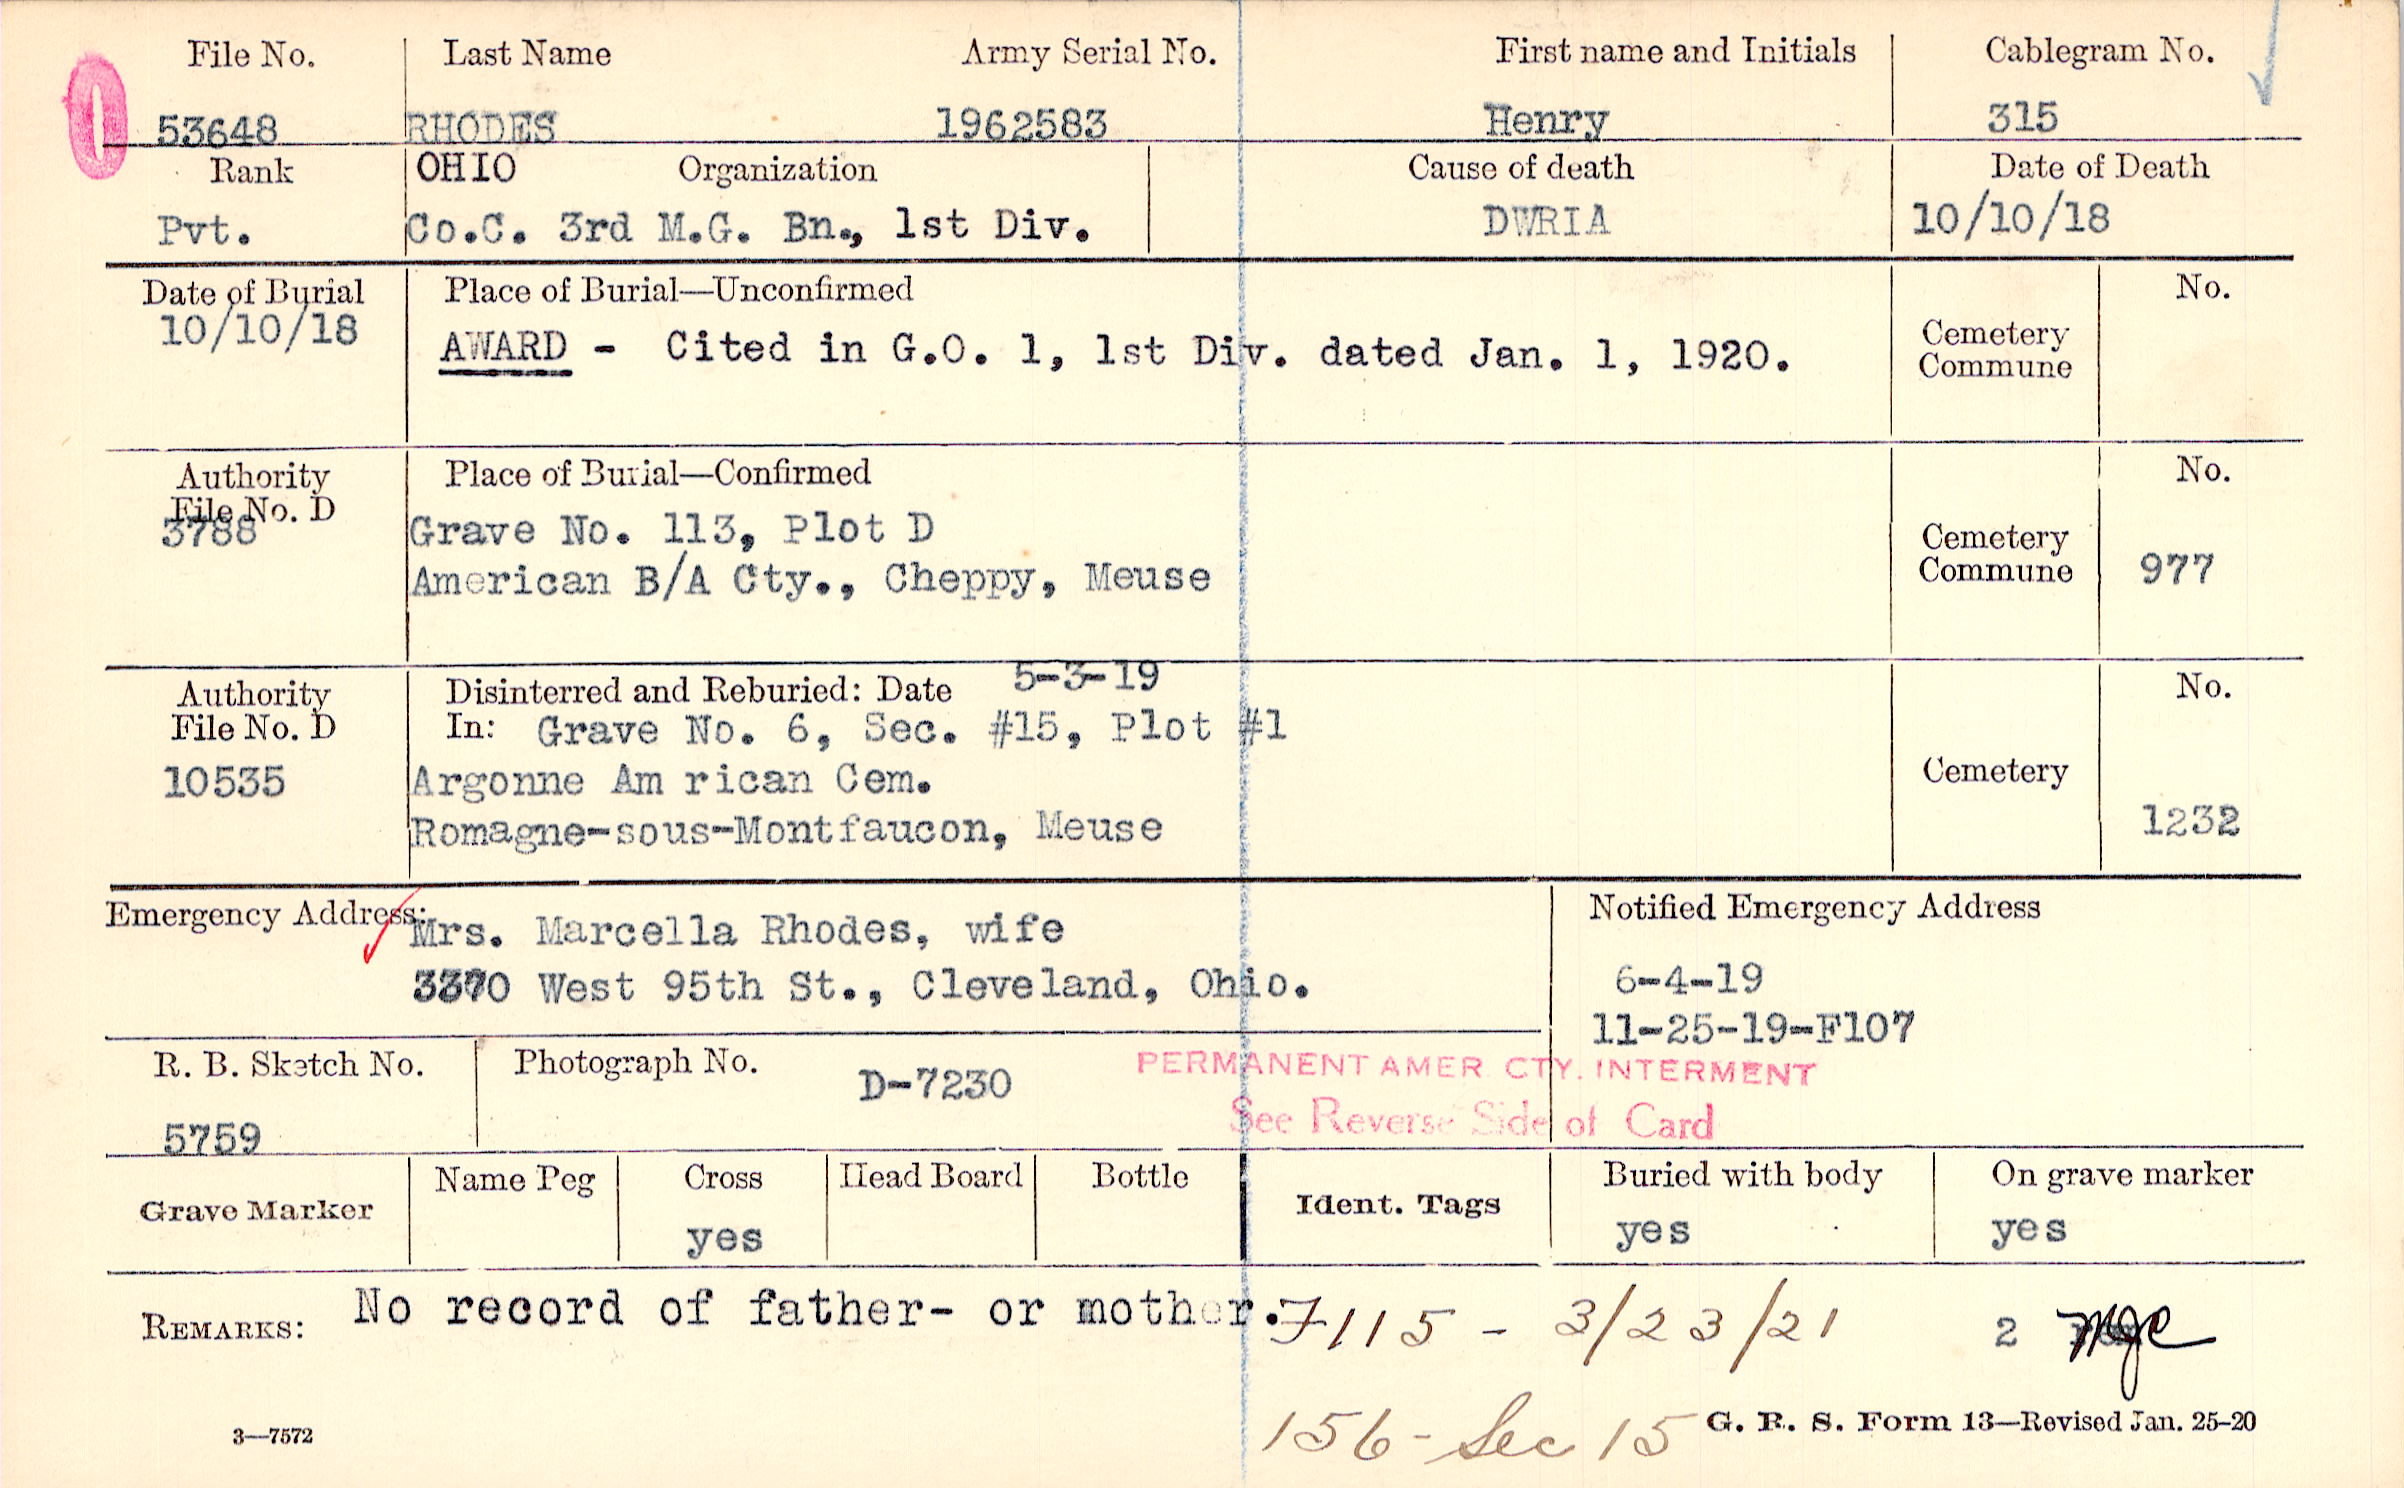 File No. Last Name Army Serial No. First name and Initials Cablegram No.
53648 RHODES 1962583 Henry 315
Rank OHIO Organization Cause of death Date of Death
Pvt. Co.C. 3rd M.G. Bn., 1st Div. DWRIA 10/10/18
Date of Burial Place of Burial—Unconfirmed No.
10/10/18 AWARD - Cited in G.O. 1, 1st Div. dated Jan. 1, 1920. Cemetery
Commune
Authority Place of Burial—Confirmed No.
File No. D
3788 Grave No. 113, Plot D Cemetery
American B/A Cty., Cheppy, Meuse Commune 977
Authority Disinterred and Reburied: Date 5-3-19 No.
File No. D In: Grave No. 6, Sec. #15, Plot #1
10535 Argonne Am rican Cem. Cemetery
Romagne-sous-Montfaucon, Meuse 1232
Emergency Address: Mrs. Marcella Rhodes, wife Notified Emergency Address
West 95th St., Cleveland, Ohio. 6-4-19
11-25-19-F107
R. B. Sketch No. Photograph No. D-7230 PERMANENT AMER CTY. INTERMENT
5759 See Reverse Side of Card
Grave Marker Name Peg Cross Head Board Bottle Ident. Tags Buried with body On grave marker
yes yes yes
REMARKS: No record of father- or mother. F115 - 3/23/21 2
156 - Sec 15
3—7572 G. R. S. Form 13—Revised Jan. 25-20